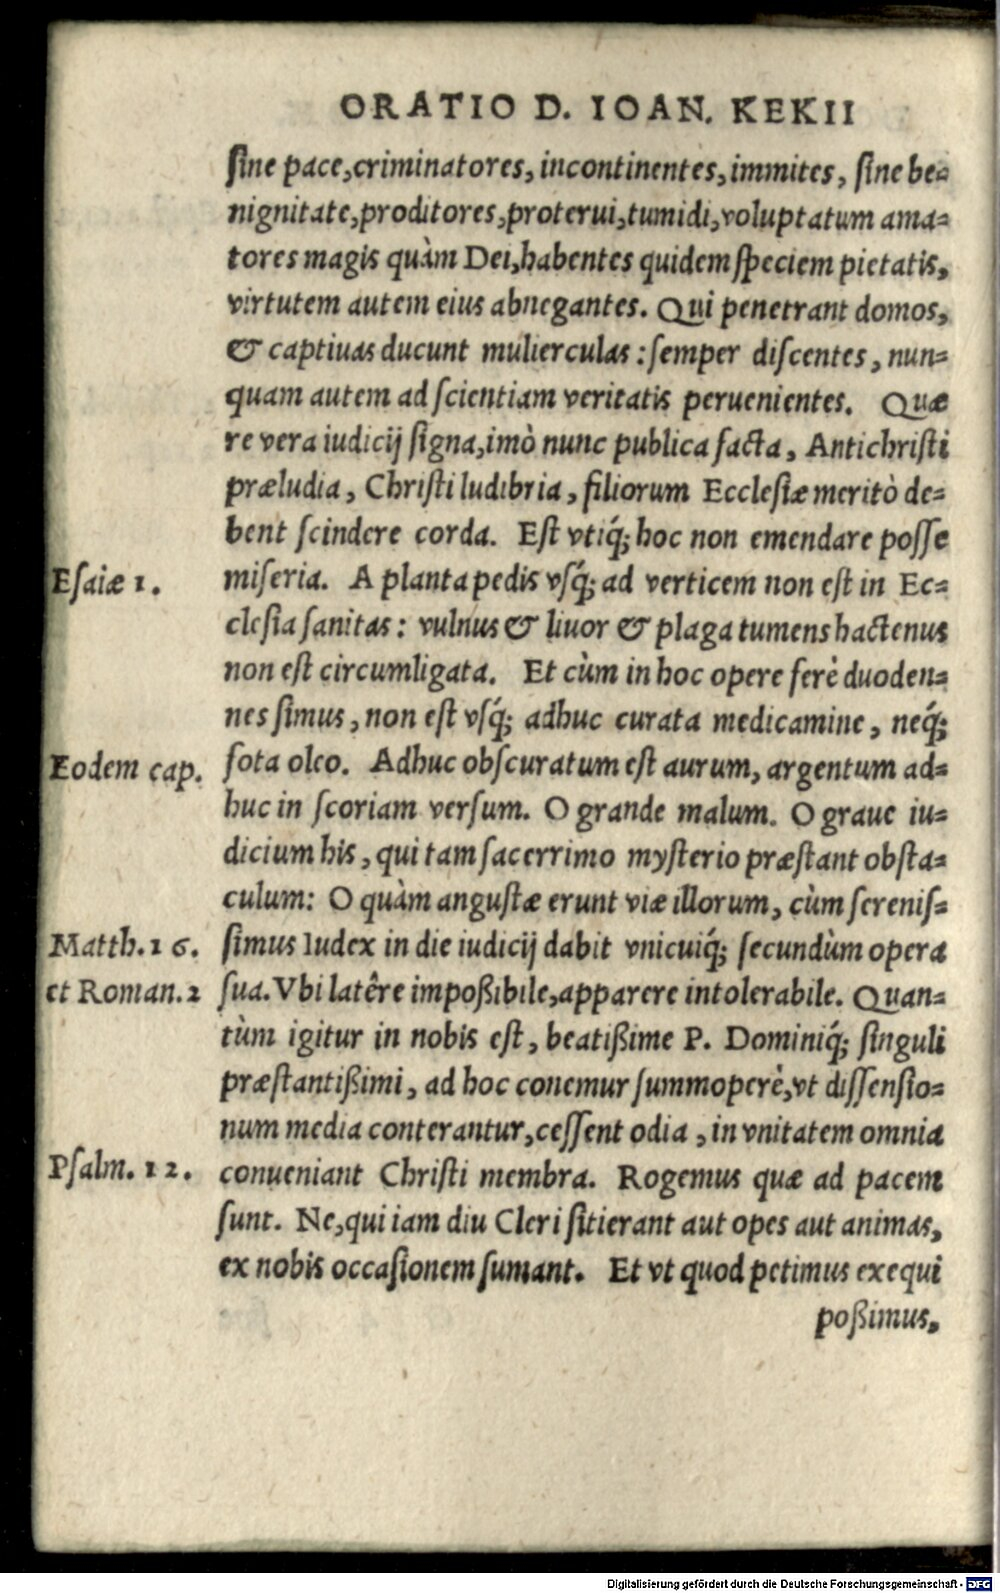 ORATIO D. IOAN. KEKII
ſine pace,criminatores, incontinentes,immites, ſine be-
nignitate,proditores,proterui,tumidi,voluptatum ama-
tores magis quàm Dei,habentes quidem ſpeciem pietatis,
virtutem autem eius abnegantes. Qui penetrant domos,
& captiuas ducunt mulierculas : ſemper diſcentes, nun-
quam autem ad ſcientiam veritatis peruenientes. Quæ
re vera iudicij ſigna,imò nunc publica facta, Antichriſti
præludia, Chriſti ludibria, filiorum Eccleſiæ meritò de-
bent ſcindere corda. Eſt vtiq́; hoc non emendare poſſe
Eſaiæ 1.
miſeria. A planta pedis vſq́; ad verticem non eſt in Ec-
cleſia ſanitas: vulnus & liuor & plaga tumens hactenus
non eſt circumligata. Et cùm in hoc opere ferè duoden-
nes ſimus, non eſt vſq́; adhuc curata medicamine, neq́;
Eodem cap.
fota oleo. Adhuc obſcuratum eſt aurum, argentum ad-
huc in ſcoriam verſum. O grande malum. O graue iu-
dicium his, qui tam ſacerrimo myſterio præſtant obſta-
culum: O quàm anguſtæ erunt viæ illorum, cùm ſereniſ-
Matth. 16.
ſimus Iudex in die iudicij dabit vnicuiq́; ſecundùm opera
et Roman. 2
ſua. Vbi latêre impoßibile,apparere intolerabile. Quan-
tùm igitur in nobis eſt, beatißime P. Dominiq́; ſinguli
præſtantißimi, ad hoc conemur ſummoperè,vt diſſenſio-
num media conterantur,ceſſent odia, in vnitatem omnia
Pſalm. 12.
conueniant Chriſti membra. Rogemus quæ ad pacem
ſunt. Ne,qui iam diu Cleri ſitierant aut opes aut animas,
ex nobis occaſionem ſumant. Et vt quod petimus exequi
poßimus,
Digitalisierung gefördert durch die Deutsche Forschungsgemeinschaft - DFG